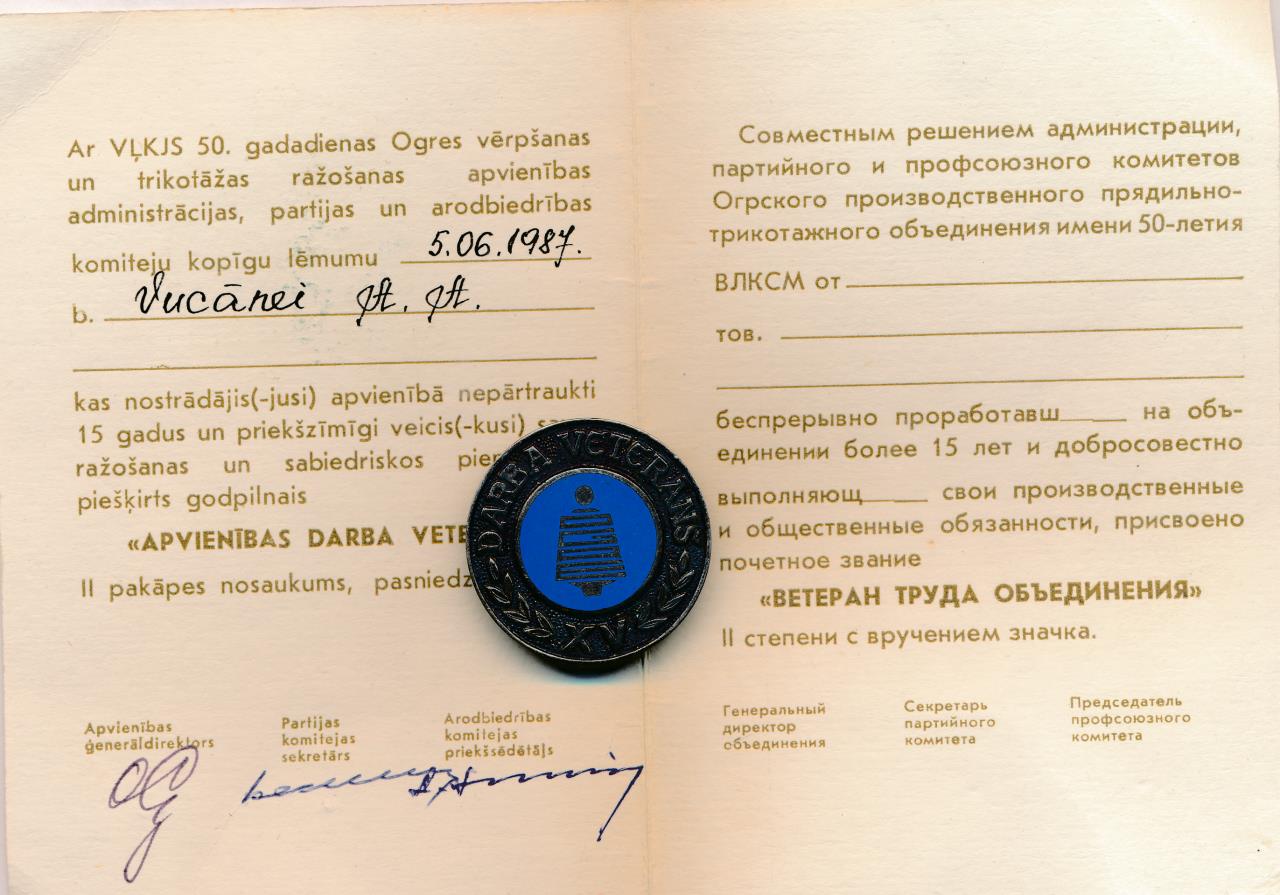 Ar VĻKJS 50. gadadienas Ogres vērpšanas
un trikotāžas ražošanas apvienības
administrācijas, partijas un arodbiedrības
komiteju kopīgu lēmumu 5.06.1987.
b. Vucānei A. A.
kas nostrādājis(-jusi) apvienībā nepārtraukti
15 gadus un priekšzīmīgi veicis(-kusi)
ražošanas un sabiedriskos
piešķirts godpilnais
«APVIENĪBAS DARBA VETE
II pakāpes nosaukums, pasniedz
Apvienības
ģenerāldirektors
Partijas
komitejas
sekretārs
Arodbiedrības
komitejas
priekšsēdētājs
DARBA VETERANS
XV
Совместным решением администрации,
партийного и профсоюзного комитетов
Огрского производственного прядильно-
трикотажного объединения имени 50-летия
ВЛКСМ от
тов.
беспрерывно проработавш____ на объ-
единении более 15 лет и добросовестно
выполняющ____ свои производственные
и общественные обязанности, присвоено
почетное звание
«ВЕТЕРАН ТРУДА ОБЪЕДИНЕНИЯ»
II степени с вручением значка.
Генеральный
директор
объединения
Секретарь
партийного
комитета
Председатель
профсоюзного
комитета